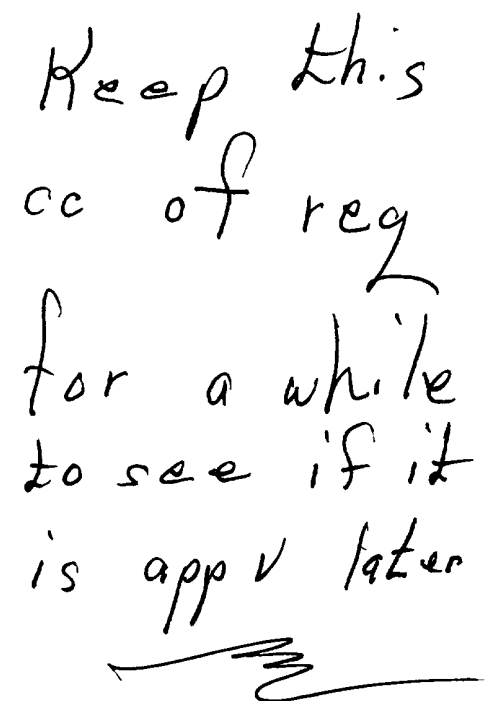 Keep this
cc of req
for a while
to see if it
is appv later